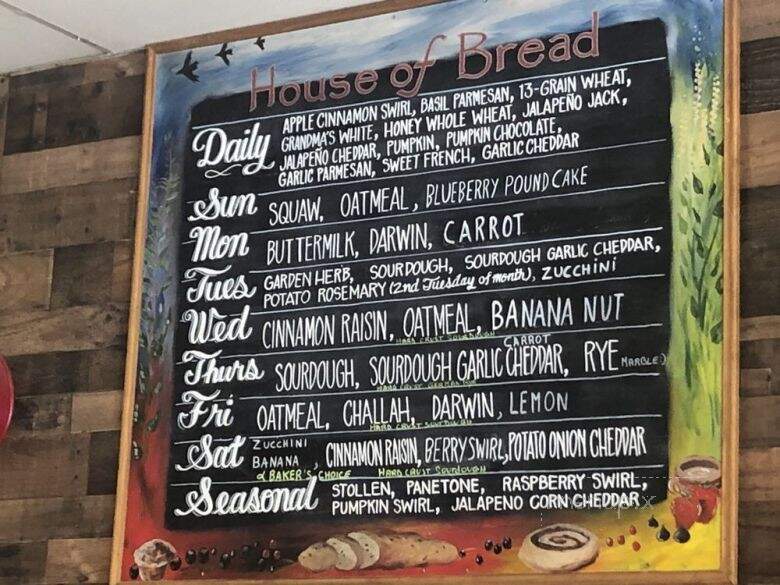 House of Bread
Daily
APPLE CINNAMON SWIRL, BASIL PARMESAN, 13-GRAIN WHEAT,
GRANDMA'S WHITE, HONEY WHOLE WHEAT, JALAPEÑO JACK,
JALAPEÑO CHEDDAR, PUMPKIN, PUMPKIN CHOCOLATE,
GARLIC PARMESAN, SWEET FRENCH, GARLIC CHEDDAR
Sun SQUAW, OATMEAL, BLUEBERRY POUND CAKE
Mon BUTTERMILK, DARWIN, CARROT
Tues GARDEN HERB, SOURDOUGH, SOURDOUGH GARLIC CHEDDAR,
POTATO ROSEMARY (2nd Tuesday of month), ZUCCHINI
Wed CINNAMON RAISIN, OATMEAL, BANANA NUT
HARD CRUST SOURDOUGH
CARROT
Thurs SOURDOUGH, SOURDOUGH GARLIC CHEDDAR, RYE MARBLE)
HARD CRUST GERMAN RYE
Fri OATMEAL, CHALLAH, DARWIN, LEMON
HARD CRUST SOURDOUGH
Sat ZUCCHINI
BANANA, CINNAMON RAISIN, BERRY SWIRL, POTATO ONION CHEDDAR
& BAKER'S CHOICE HARD CRUST SOURDOUGH
Seasonal STOLLEN, PANETONE, RASPBERRY SWIRL,
PUMPKIN SWIRL, JALAPENO CORN CHEDDAR